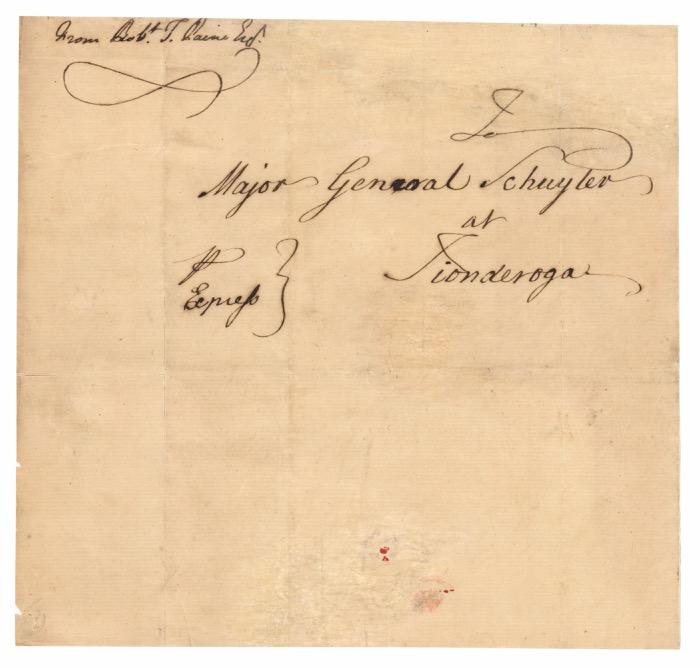 From Robt. T. Paine Esqr.
To
Major General Schuyler
at
Tionderoga
⅌
Express